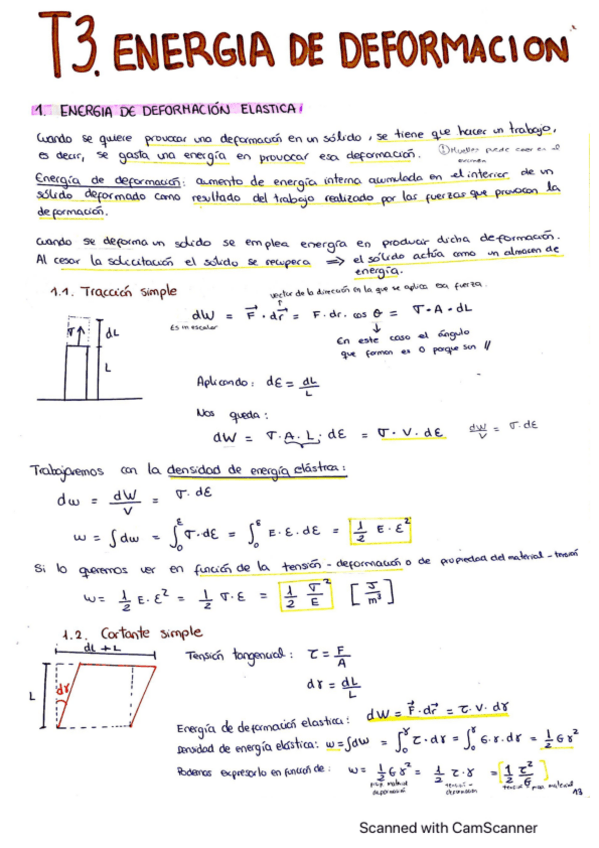 T3. ENERGIA DE DEFORMACION
1. ENERGIA DE DEFORMACIÓN ELASTICA:
Cuando se quiere provocar una deformación en un sólido, se tiene que hacer un trabajo,
es decir, se gasta una energía en provocar esa deformación. ① Muelles puede caer en el
examen
Energía de deformación: aumento de energía interna acumulada en el interior de un
sólido deformado como resultado del trabajo realizado por las fuerzas que provocan la
deformación.
Cuando se deforma un solido se emplea energía en producir dicha deformación.
Al cesar la solicitación el sólido se recupera ⇒ el sólido actúa como un almacen de
energía.
1.1. Tracción simple
vector de la dirección en la que se aplica esa fuerza.
dW = F⃗ · dr⃗ = F · dr · cos θ = σ · A · dL
Es un escalar
En este caso el ángulo
que forman es 0 porque son //
σ dL
L
Aplicando: dε = dL/L
Nos queda:
dW = σ · A · L · dε = σ · V · dε dW/V = σ · dε
Trabajaremos con la densidad de energía elástica:
dw = dW/V = σ · dε
w = ∫dw = ∫₀^ε σ · dε = ∫₀^ε E · ε · dε = 1/2 E · ε²
Si lo queremos ver en función de la tensión - deformación o de propiedad del material - tensión
w = 1/2 E · ε² = 1/2 σ · ε = 1/2 σ²/E [J/m³]
1.2. Cortante simple
dL + L
L
dγ
Tensión tangencial: τ = F/A
dγ = dL/L
Energía de deformación elastica: dW = F⃗ · dr⃗ = τ · V · dγ
Densidad de energía elástica: w = ∫dw = ∫₀^γ τ · dγ = ∫₀^γ G · γ · dγ = 1/2 G γ²
Podemos expresarlo en función de: w = 1/2 G γ² = 1/2 τ · γ = [1/2 τ²/G]
prop. material
deformación
tensión -
deformación
tensión prop. material
13
Scanned with CamScanner